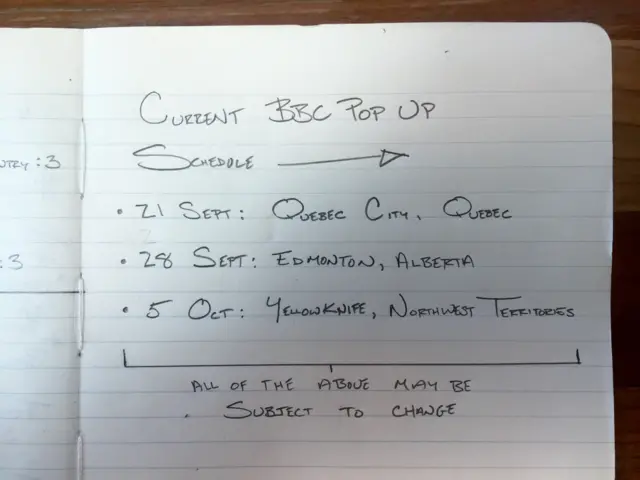 CURRENT BBC POP UP
SCHEDULE
• 21 SEPT: QUEBEC CITY, QUEBEC
• 28 SEPT: EDMONTON, ALBERTA
• 5 OCT: YELLOWKNIFE, NORTHWEST TERRITORIES
ALL OF THE ABOVE MAY BE
SUBJECT TO CHANGE
:3
:3